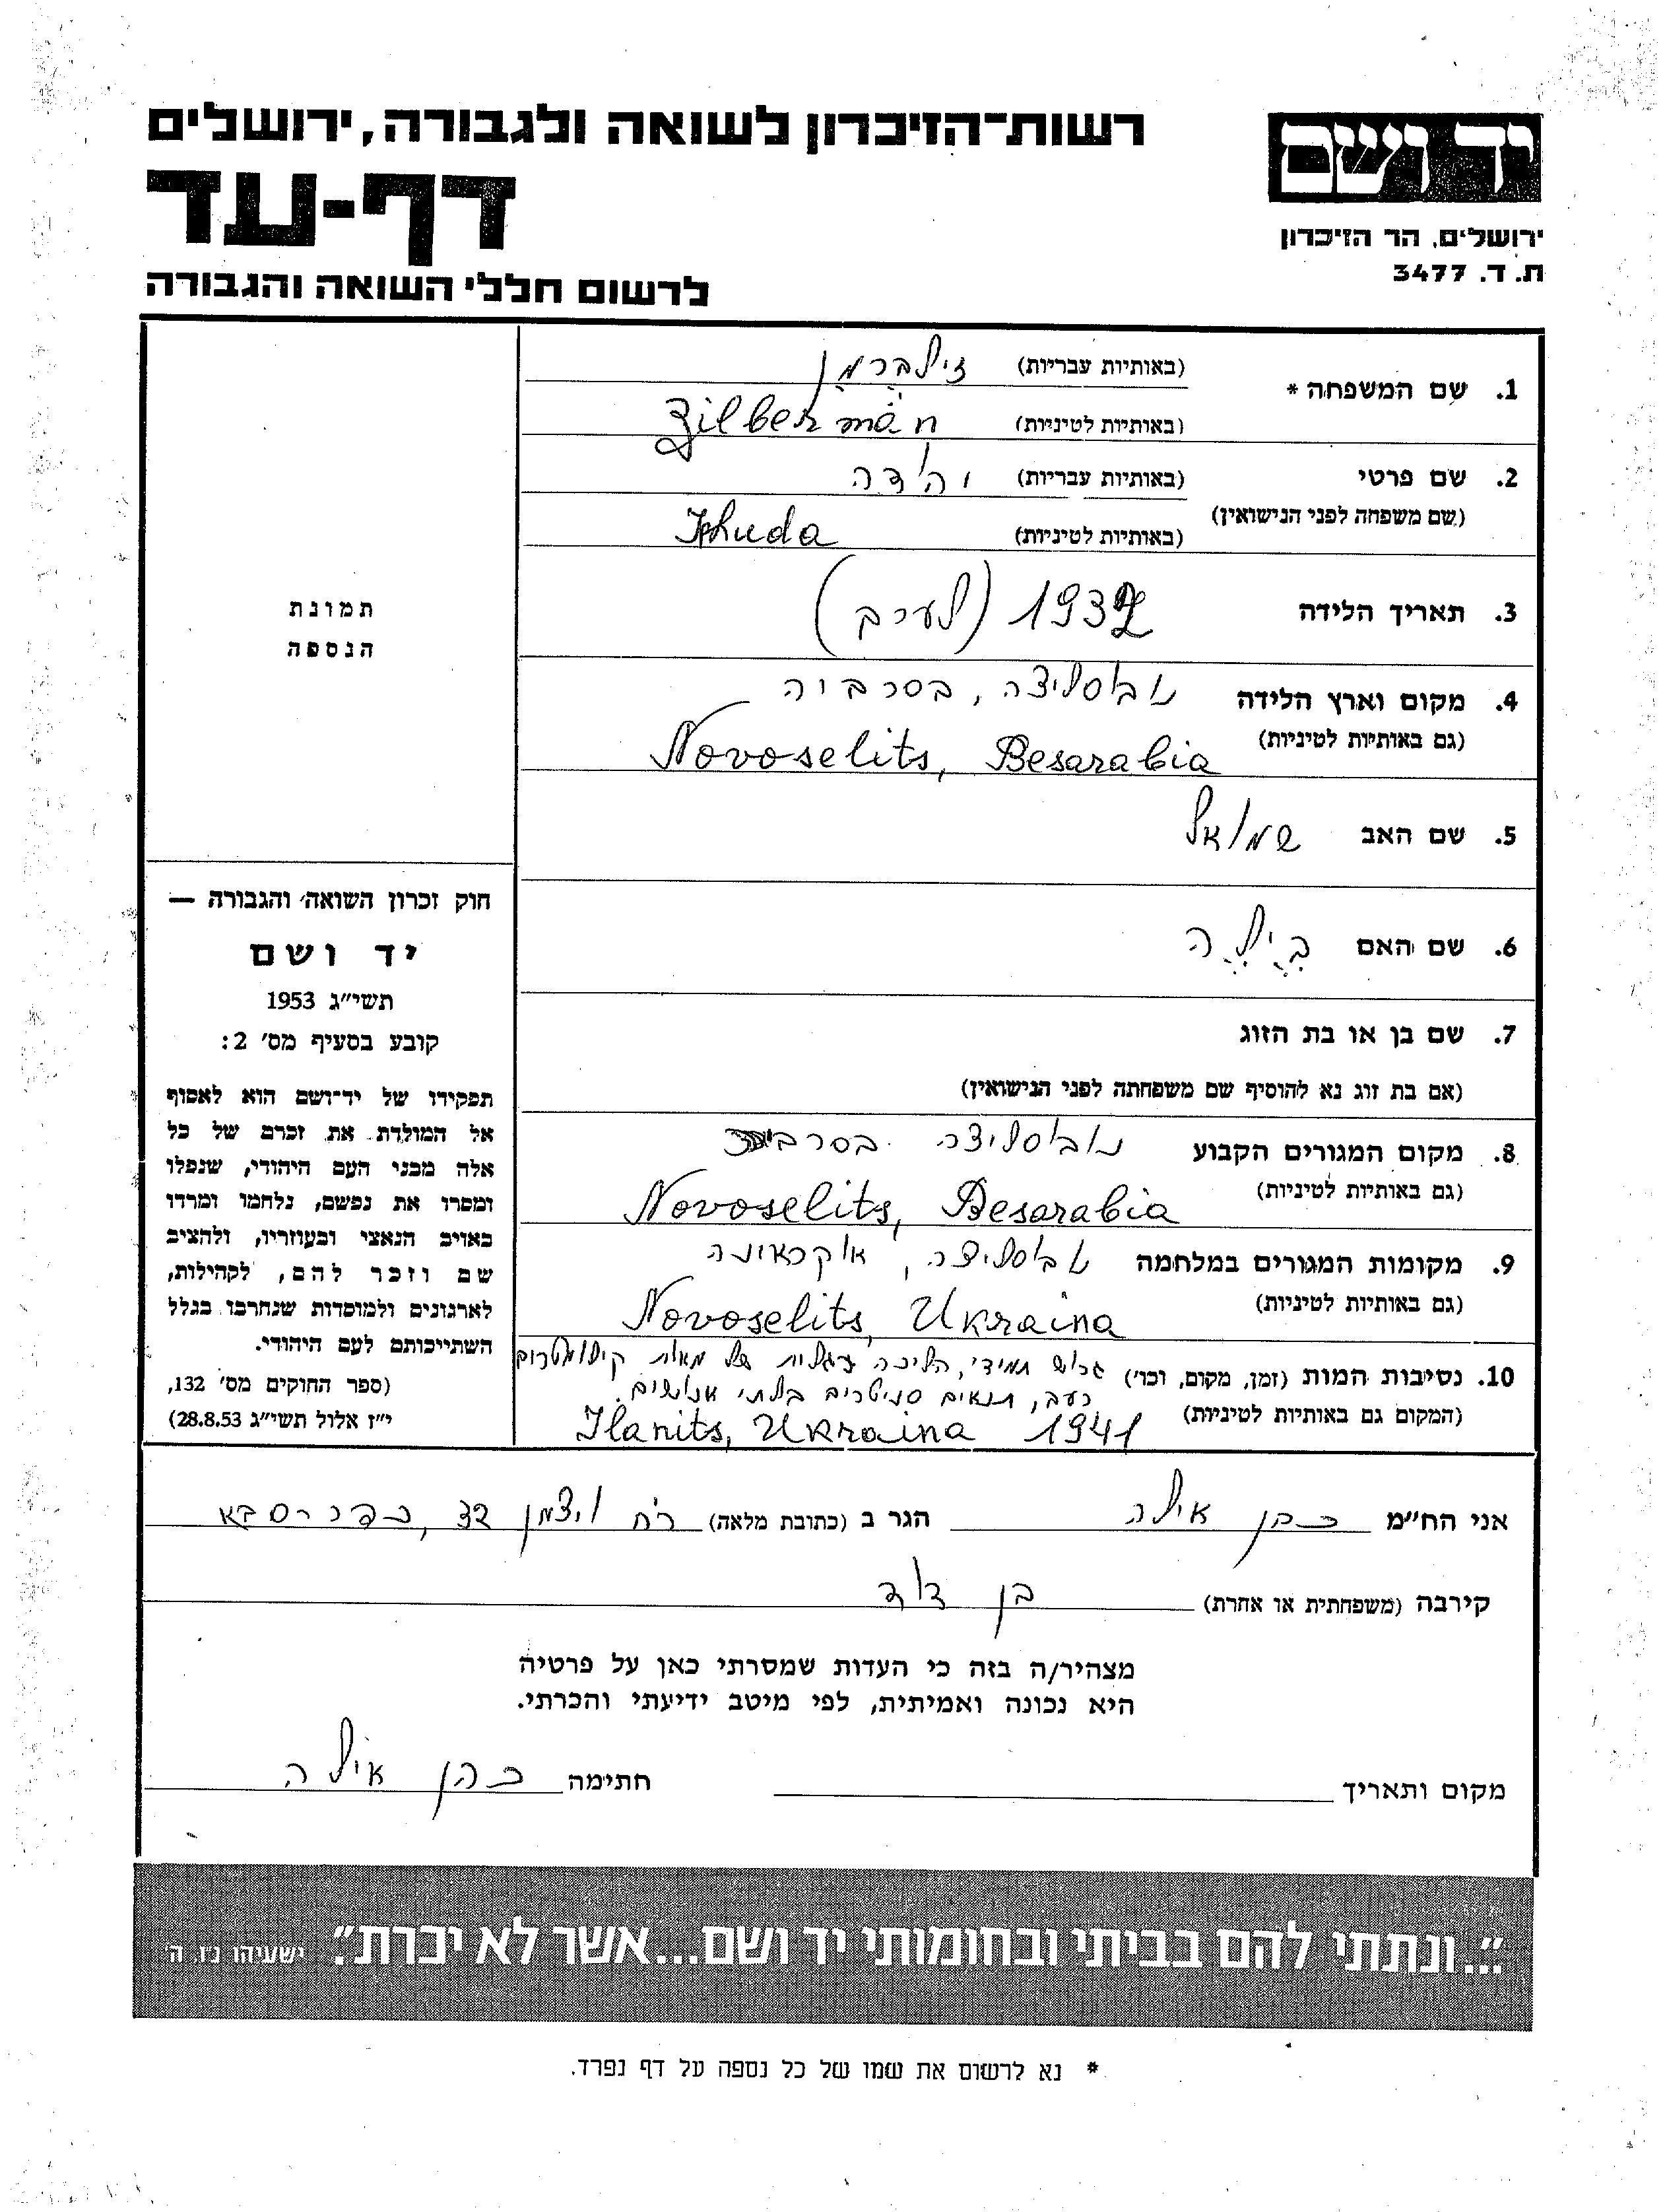 רשות־הזיכרון לשואה ולגבורה, ירושלים
יד ושם
דף-עד
ירושלים, הר הזיכרון
ת. ד. 3477
לרשום חללי השואה והגבורה
1. שם המשפחה * (באותיות עבריות) זילברמן
(באותיות לטיניות) Zilberman
2. שם פרטי (באותיות עבריות) יהודה
(שם משפחה לפני הנישואין)
(באותיות לטיניות) Ihuda
3. תאריך הלידה 1932 (לערך)
4. מקום וארץ הלידה נובוסליצה, בסרביה
(גם באותיות לטיניות) Novoselits, Besarabia
5. שם האב שמואל
6. שם האם בילה
7. שם בן או בת הזוג
(אם בת זוג נא להוסיף שם משפחתה לפני הנישואין)
8. מקום המגורים הקבוע נובוסליצה בסרביה
(גם באותיות לטיניות) Novoselits, Besarabia
9. מקומות המגורים במלחמה נובוסליצה, אוקראינה
(גם באותיות לטיניות) Novoselits, Ukraina
10. נסיבות המות (זמן, מקום, וכו') גרוש תמידי, הליכה רגלית של מאות קילומטרים
רעב, תנאים סניטרים בלתי אנושיים.
(המקום גם באותיות לטיניות) Ilanits, Ukraina 1941
תמונת
הנספה
חוק זכרון השואה והגבורה —
יד ושם
תשי"ג 1953
קובע בסעיף מס' 2:
תפקידו של יד־ושם הוא לאסוף
אל המולדת את זכרם של כל
אלה מבני העם היהודי, שנפלו
ומסרו את נפשם, נלחמו ומרדו
באויב הנאצי ובעוזריו, ולהציב
שם וזכר להם, לקהילות,
לארגונים ולמוסדות שנחרבו בגלל
השתייכותם לעם היהודי.
(ספר החוקים מס' 132,
י"ז אלול תשי"ג 28.8.53)
אני הח"מ כהן אילה הגר ב (כתובת מלאה) רח ויצמן 32, כפר סבא
קירבה (משפחתית או אחרת) בן דוד
מצהיר/ה בזה כי העדות שמסרתי כאן על פרטיה
היא נכונה ואמיתית, לפי מיטב ידיעתי והכרתי.
מקום ותאריך חתימה כהן אילה
"...ונתתי להם בביתי ובחומותי יד ושם...אשר לא יכרת". ישעיהו נ"ו, ה'
* נא לרשום את שמו של כל נספה על דף נפרד.